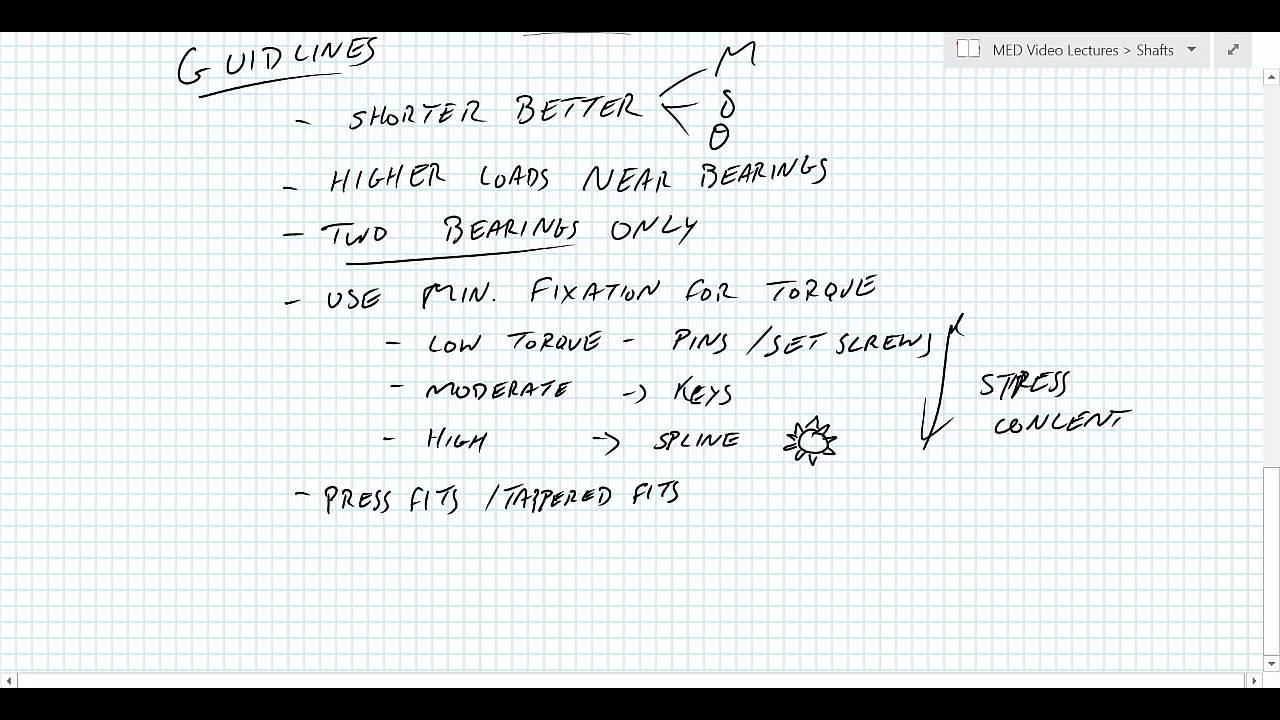 MED Video Lectures > Shafts
GUIDLINES
- SHORTER BETTER M
δ
θ
- HIGHER LOADS NEAR BEARINGS
- TWO BEARINGS ONLY
- USE MIN. FIXATION FOR TORQUE
- LOW TORQUE - PINS / SET SCREWS
- MODERATE -> KEYS
- HIGH -> SPLINE
STRESS
CONCENT
- PRESS FITS / TAPPERED FITS